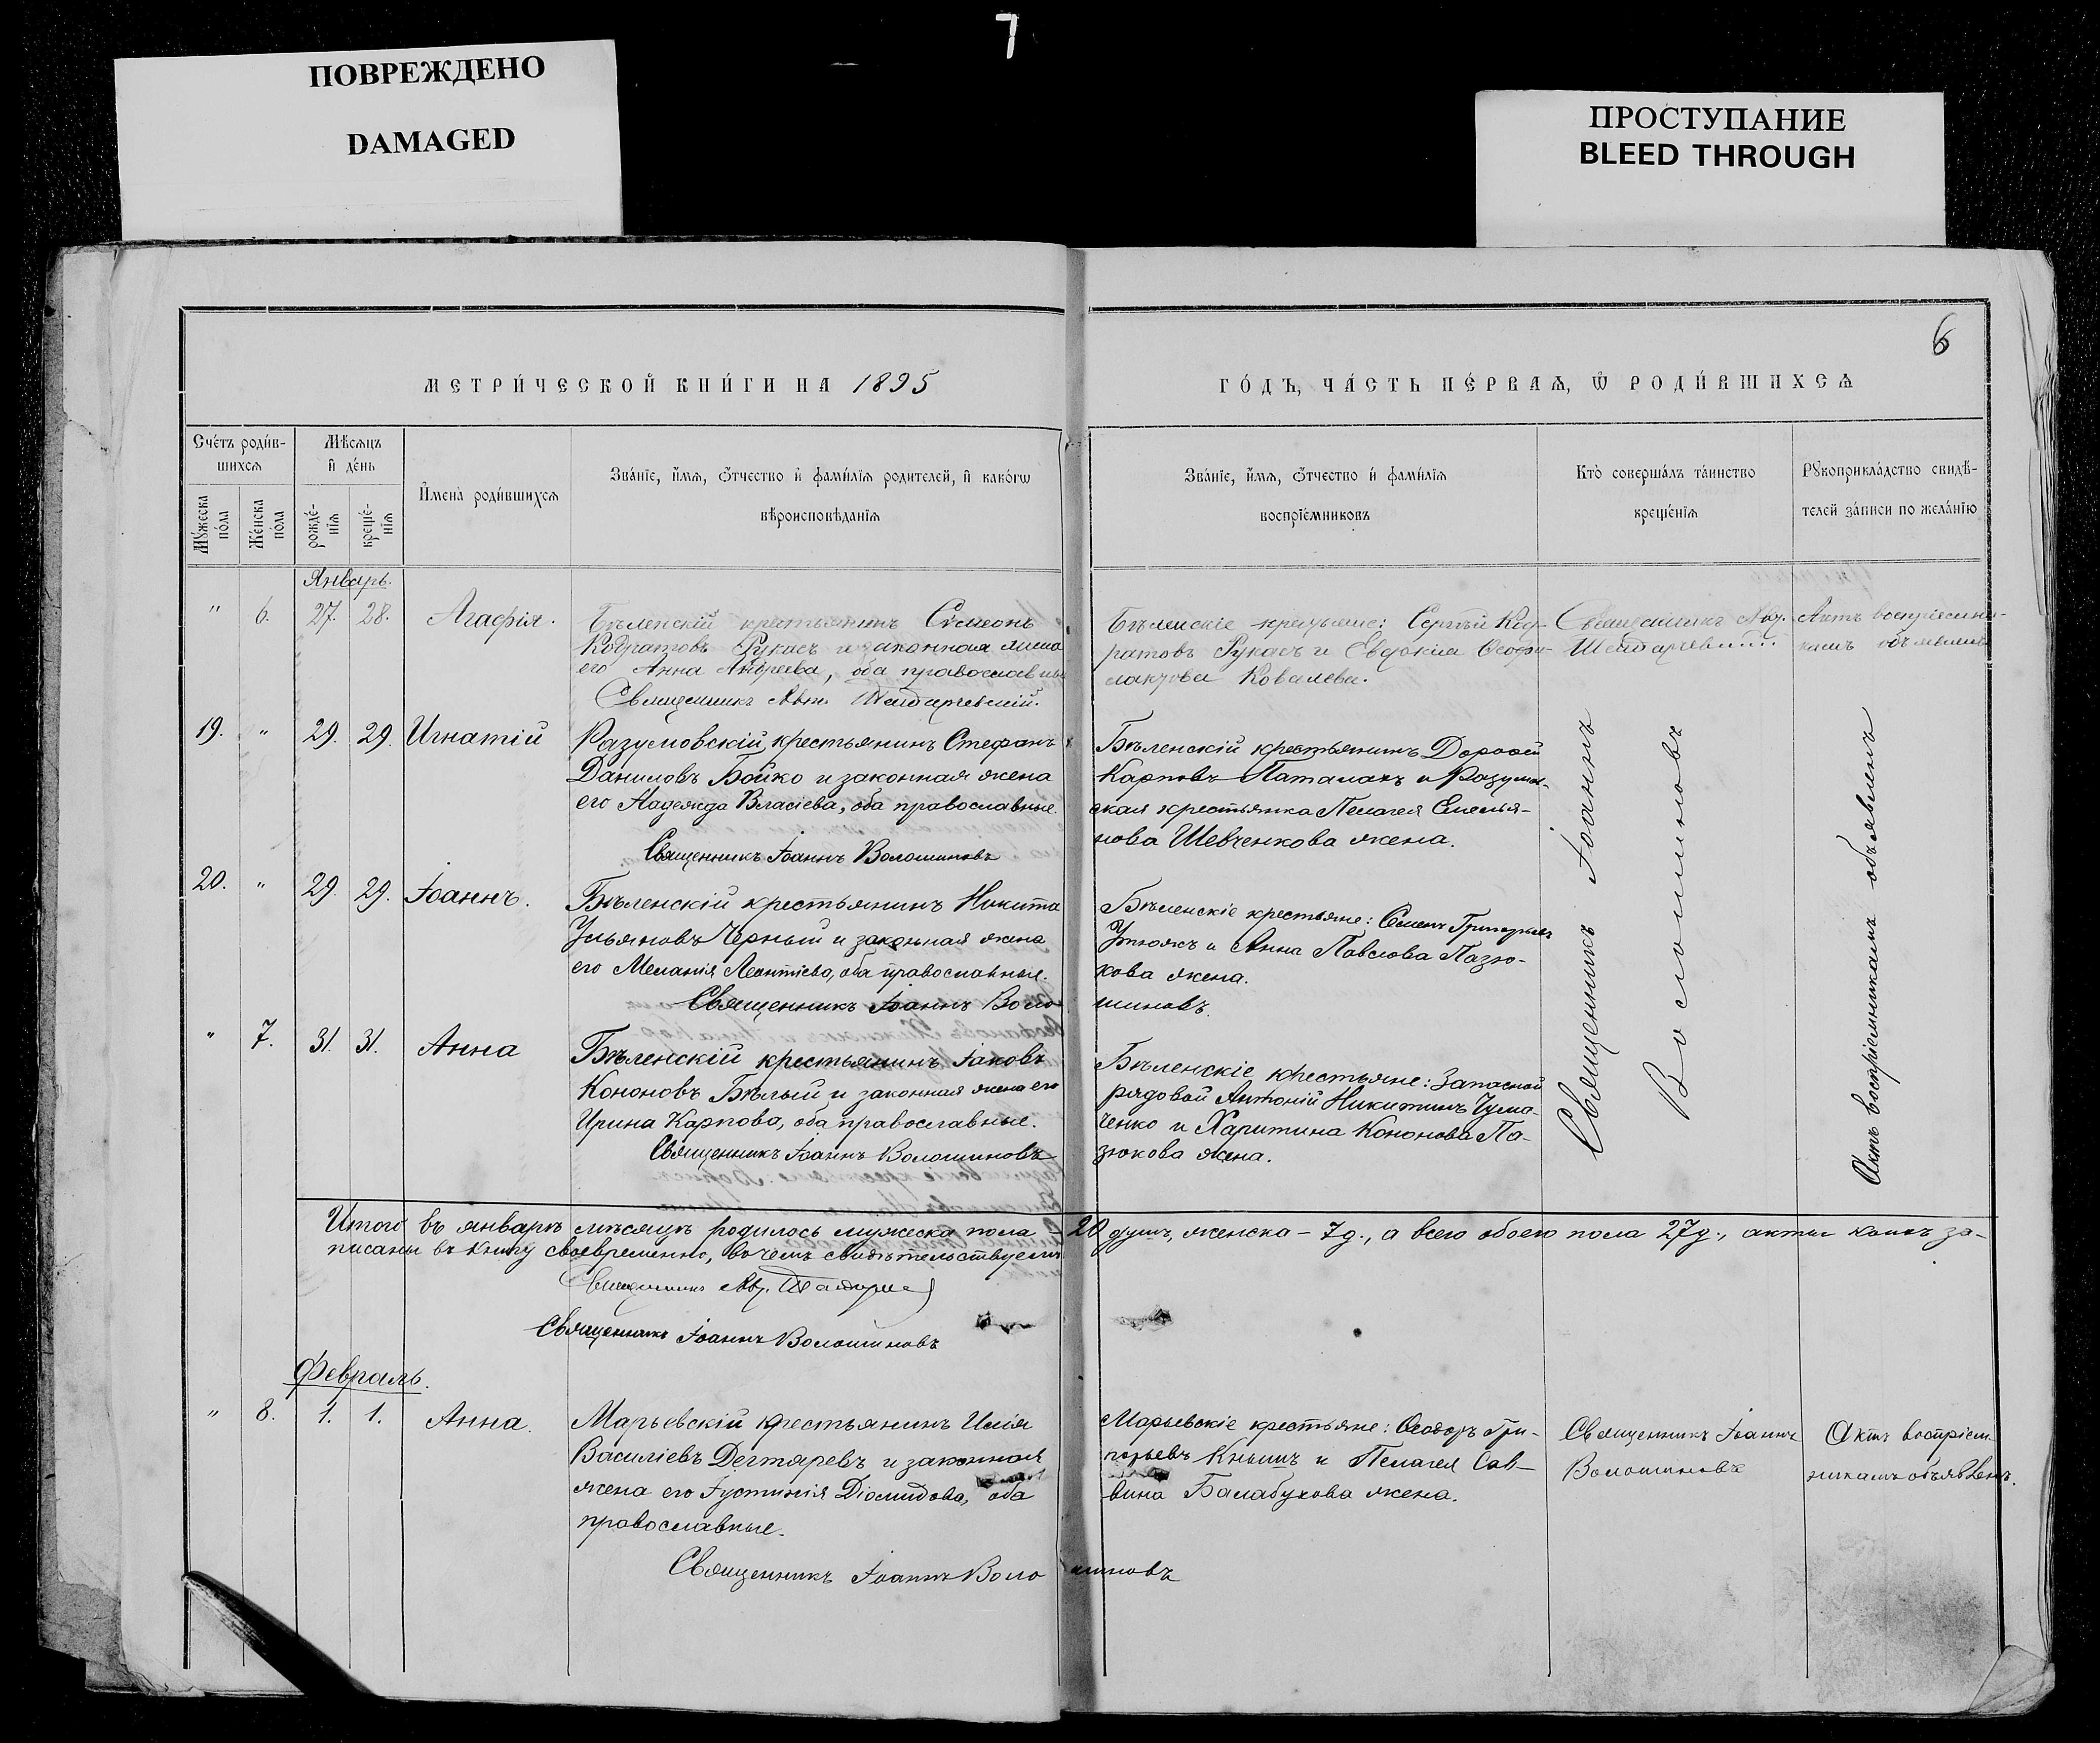 7
ПОВРЕЖДЕНО
DAMAGED
ПРОСТУПАНИЕ
BLEED THROUGH
6
МЕТРИ́ЧЕСКОЙ КНИ́ГИ НА 1895
ГО́ДЪ, ЧА́СТЬ ПЕ́РВАѦ, Ѡ҆ РОДИ́ВШИХСѦ
Сче́тъ роди́в-
шихсѧ
Мꙋ́жеска по́ла
Же́нска по́ла
Мѣ́сѧцъ
и҆ де́нь
рожде́-
нїѧ
креще́-
нїѧ
И҆мена̀ роди́вшихсѧ
Зва́нїе, и҆́мѧ, ѻ҆́тчество и҆ фами́лїѧ родителей, и҆ како́гѡ
вѣроисповѣ́данїѧ
Зва́нїе, и҆́мѧ, ѻ҆́тчество и҆ фами́лїѧ
воспрїе́мниковъ
Кто̀ соверша́лъ та́инство
креще́нїѧ
Рꙋкоприкла́дство свидѣ́-
телей за́писи по жела́нїю
Январь.
" 6. 27. 28. Агафія.
Бѣленскій крестьянинъ Сѵмеонъ
Кодратовъ Рукасъ и законная жена
его Анна Андреева, оба православные
Священникъ
Бѣленскіе крестьяне: Сергѣй Код-
ратовъ Рукасъ и Евдокія Ѳеофи-
лактова Ковалева.
Священникъ
Актъ воспріемни-
камъ объявленъ
19. " 29. 29. Игнатій
Разумовскій крестьянинъ Стефанъ
Даниловъ Бойко и законная жена
его Надежда Власіева, оба православные.
Священникъ Іоаннъ Волошиновъ
Бѣленскій крестьянинъ Дороѳей
Карповъ Паталахъ и Разумов-
ская крестьянка Пелагея Емелья-
нова Шевченкова жена.
20. " 29. 29. Іоаннъ.
Бѣленскій крестьянинъ Никита
Ульяновъ Черный и законная жена
его Меланія Леонтіева, оба православные.
Священникъ Іоаннъ Воло-
шиновъ.
Бѣленскіе крестьяне: Семенъ Григорьевъ
Утюжъ и Анна Павлова Пазю-
кова жена.
" 7. 31. 31. Анна
Бѣленскій крестьянинъ Іаковъ
Кононовъ Бѣлый и законная жена его
Ирина Карпова, оба православные.
Священникъ Іоаннъ Волошиновъ
Бѣленскіе крестьяне: Запасной
рядовой Антоній Никитинъ Чума-
ченко и Харитина Кононова Па-
зюкова жена.
Священникъ Іоаннъ
Волошиновъ
Актъ воспріемникамъ объявленъ
Итого въ январѣ мѣсяцѣ родилось мужеска пола - 20 душъ, женска - 7 д., а всего обоего пола 27 д., акты коихъ за-
писаны въ книгу своевременно, въ чемъ свидѣтельствуемъ
Священникъ
Священникъ Іоаннъ Волошиновъ
Февраль.
" 8. 1. 1. Анна.
Марьевскій крестьянинъ Илія
Василіевъ Дегтяревъ и законная
жена его Іустинія Діомидова, оба
православные.
Священникъ Іоаннъ Волошиновъ
Марьевскіе крестьяне: Ѳеодоръ Гри-
горьевъ Кнышъ и Пелагея Сав-
вина Балабухова жена.
Священникъ Іоаннъ
Волошиновъ
Актъ воспріем-
никамъ объявленъ.